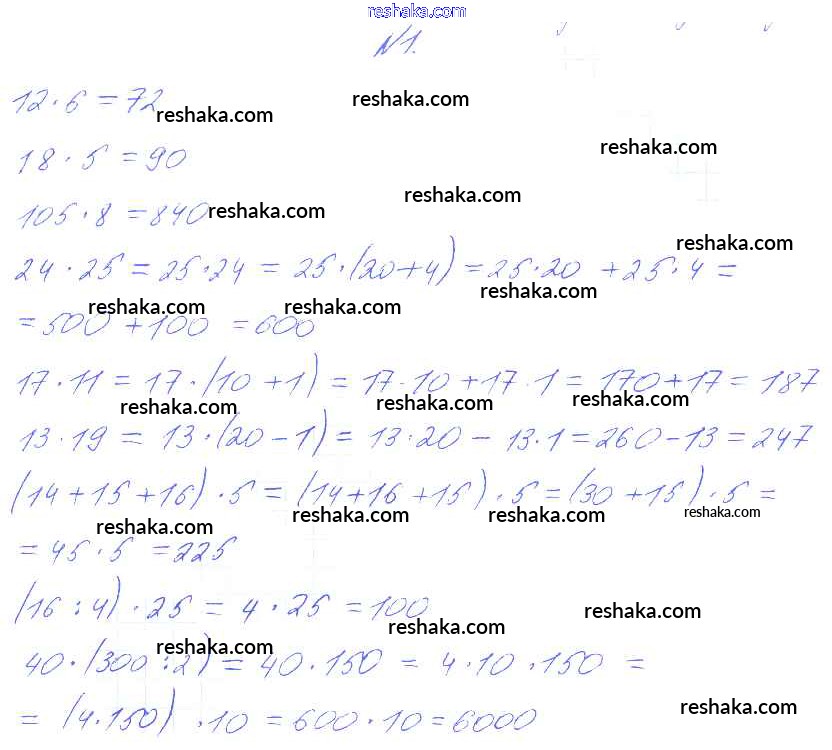 reshaka.com
N1.
12 · 6 = 72
reshaka.com
reshaka.com
18 · 5 = 90
reshaka.com
reshaka.com
105 · 8 = 840
reshaka.com
reshaka.com
24 · 25 = 25 · 24 = 25 · (20 + 4) = 25 · 20 + 25 · 4 =
reshaka.com
= 500 + 100 = 600
reshaka.com
reshaka.com
17 · 11 = 17 · (10 + 1) = 17 · 10 + 17 · 1 = 170 + 17 = 187
reshaka.com
reshaka.com
reshaka.com
13 · 19 = 13 · (20 - 1) = 13 · 20 - 13 · 1 = 260 - 13 = 247
(14 + 15 + 16) · 5 = (14 + 16 + 15) · 5 = (30 + 15) · 5 =
reshaka.com
reshaka.com
reshaka.com
reshaka.com
= 45 · 5 = 225
(16 : 4) · 25 = 4 · 25 = 100
reshaka.com
reshaka.com
40 · (300 : 2) = 40 · 150 = 4 · 10 · 150 =
reshaka.com
= (4 · 150) · 10 = 600 · 10 = 6000
reshaka.com